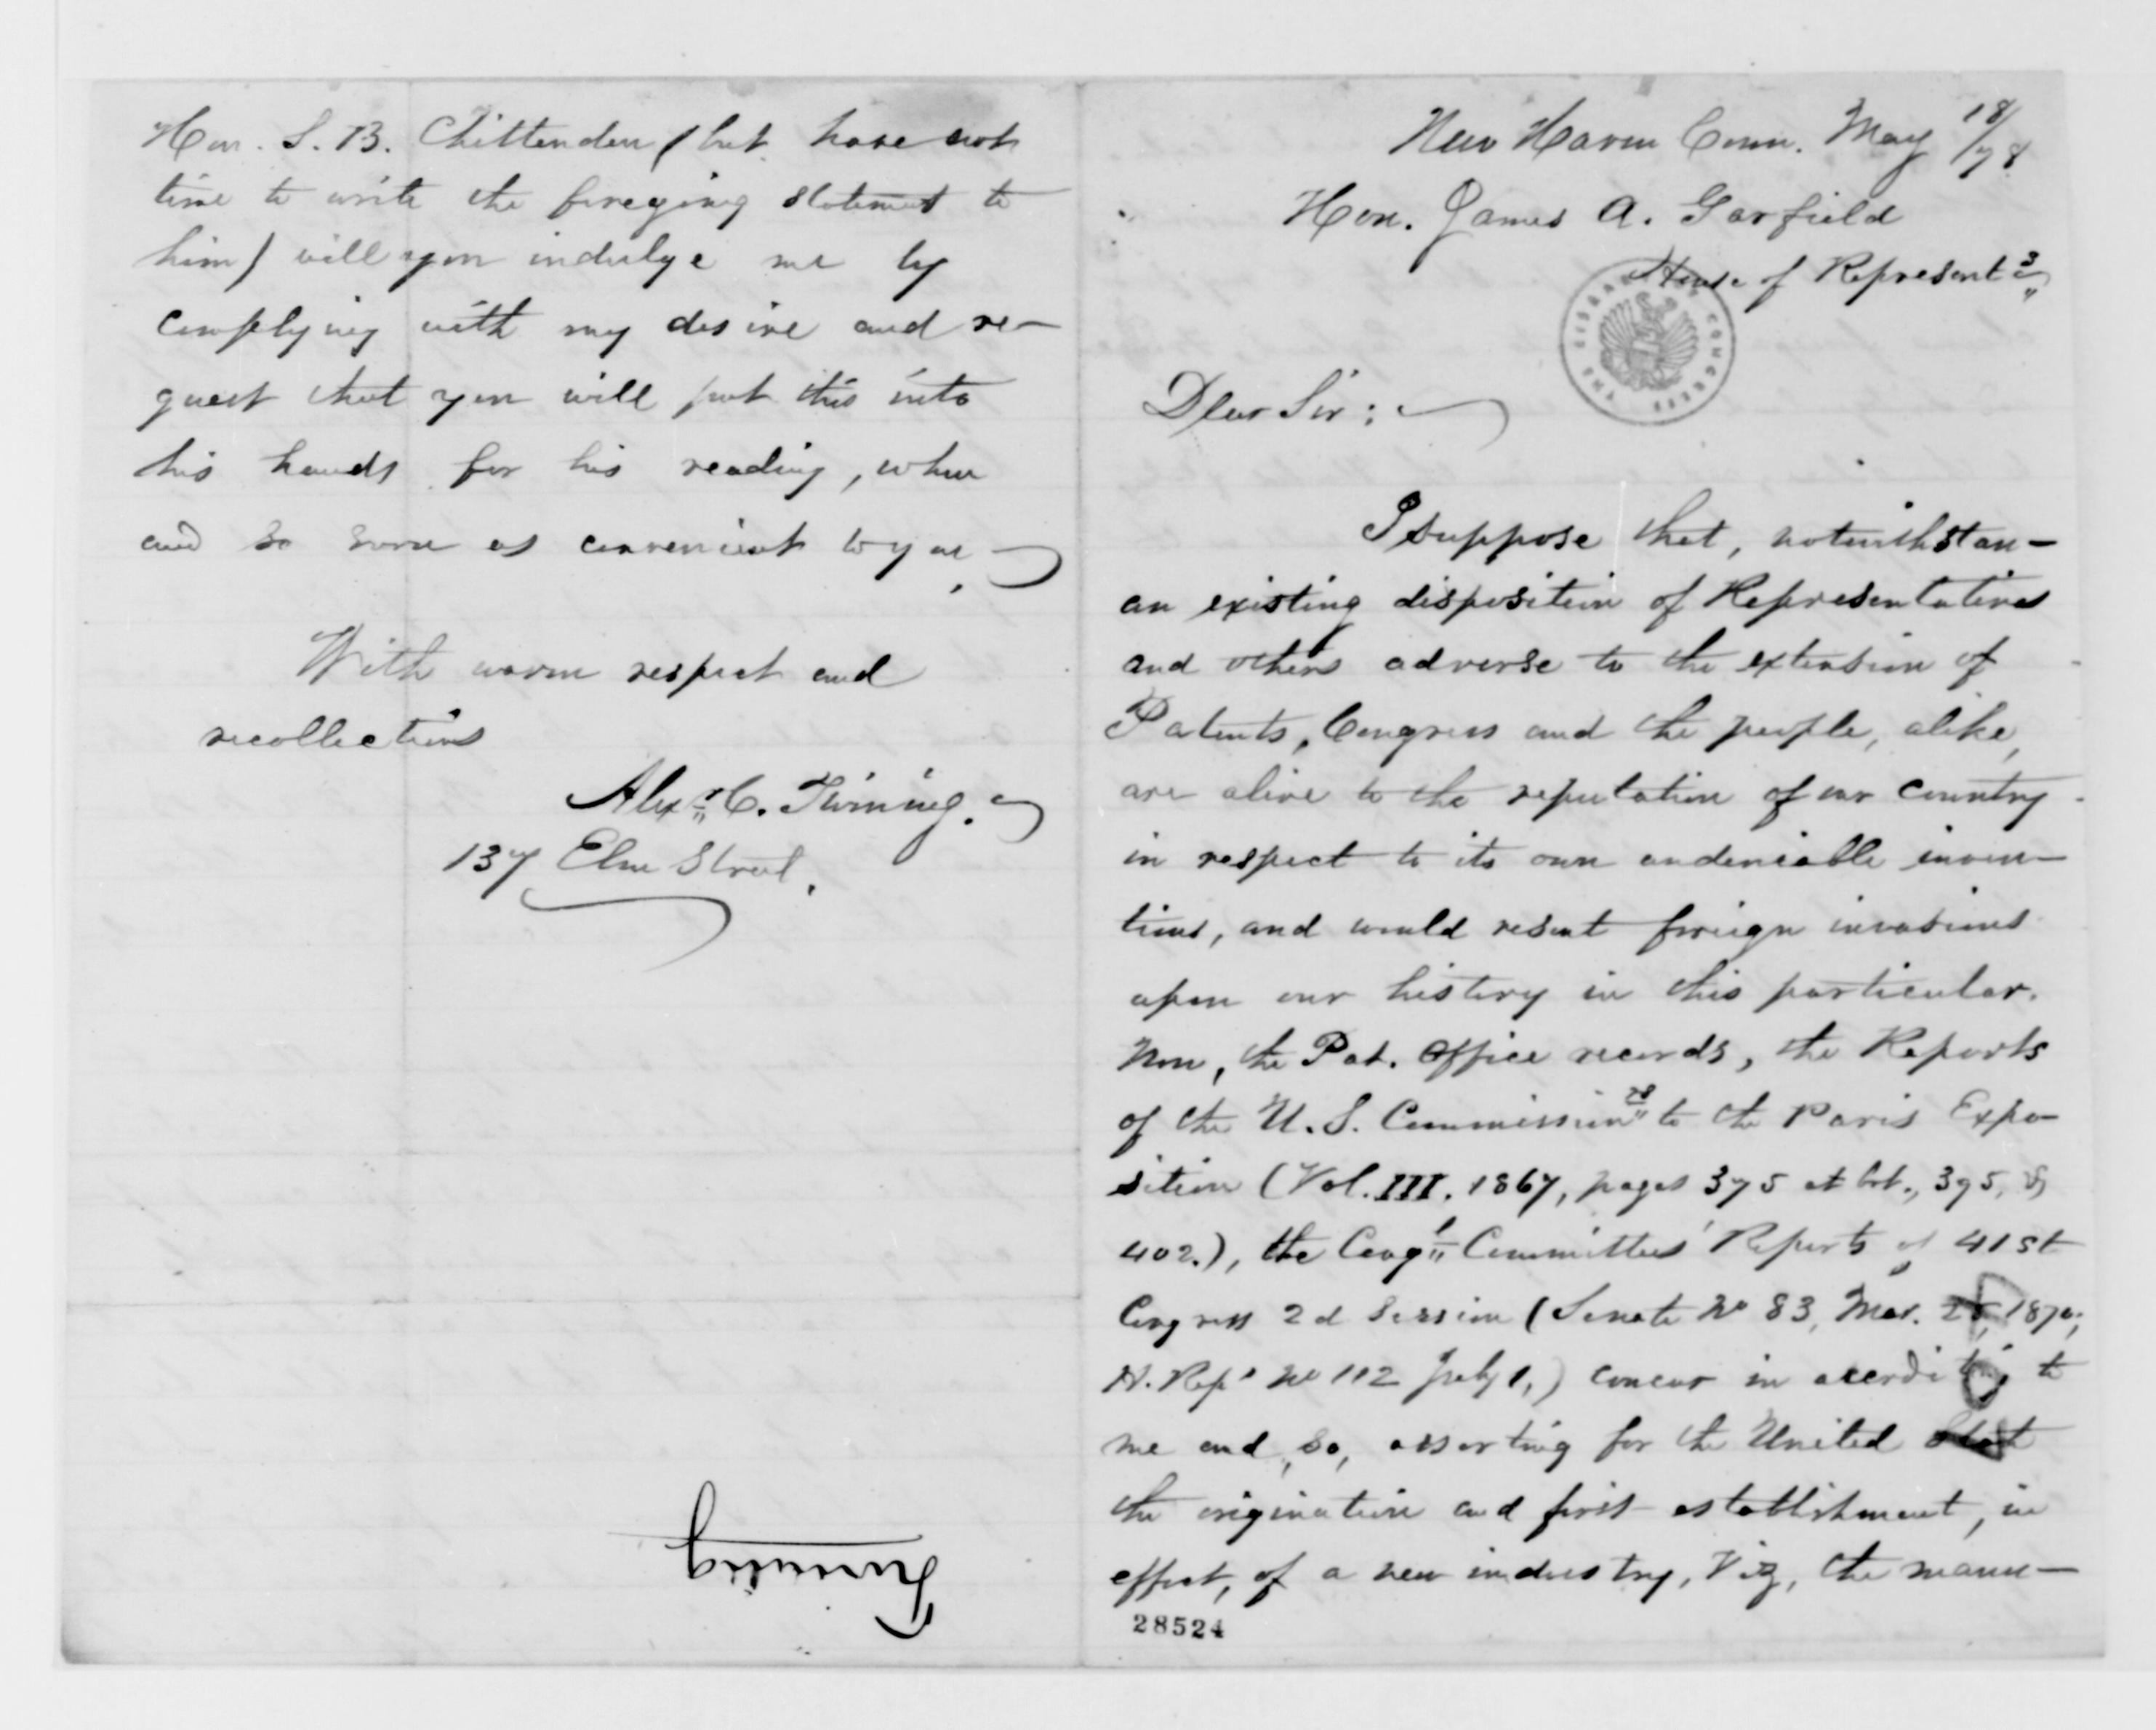 Hon. S. B. Chittenden (but have not
time to write the foregoing statement to
him) will you indulge me by
complying with my desire and re-
quest that you will put this into
his hands for his reading, when
and so soon as convenient to you.
With warm respect and
recollections
Alexr C. Twining.
137 Elm Street.
Twining
New Haven Conn. May 18/78
Hon. James A. Garfield
House of Representvs
THE LIBRARY OF CONGRESS
Dear Sir:
I suppose that, notwithstan-
an existing disposition of Representatives
and others adverse to the extension of
Patents, Congress and the people, alike,
are alive to the reputation of our Country
in respect to its own undeniable inven-
tions, and would resent foreign invasions
upon our history in this particular.
Now, the Pat. Office records, the Reports
of the U. S. Commissionrs to the Paris Expo-
sition (Vol. III. 1867, pages 375 at bot., 395, &
402.), the Congl Committees' Reports of 41st
Congress 2d Session (Senate No 83, Mar. 1870;
H. Rept No 112 July 1,) concur in accrediting to
me and, so, asserting for the United Stat
the origination and first establishment, in
effect, of a new industry, Viz, the manu-
28524